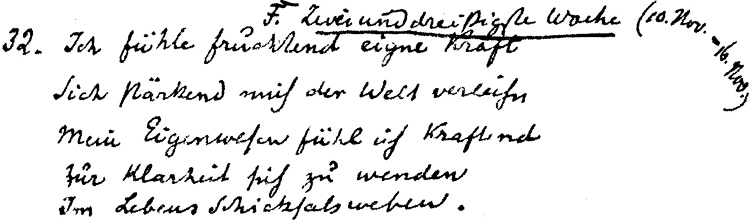 F. Zweiunddreißigste Woche (10. Nov. – 16. Nov.)
32. Ich fühle fruchtend eigne Kraft
Sich stärkend mich der Welt verleihn
Mein Eigenwesen fühl ich Kraftend
Zur Klarheit sich zu wenden
Im Lebensschicksalsweben.